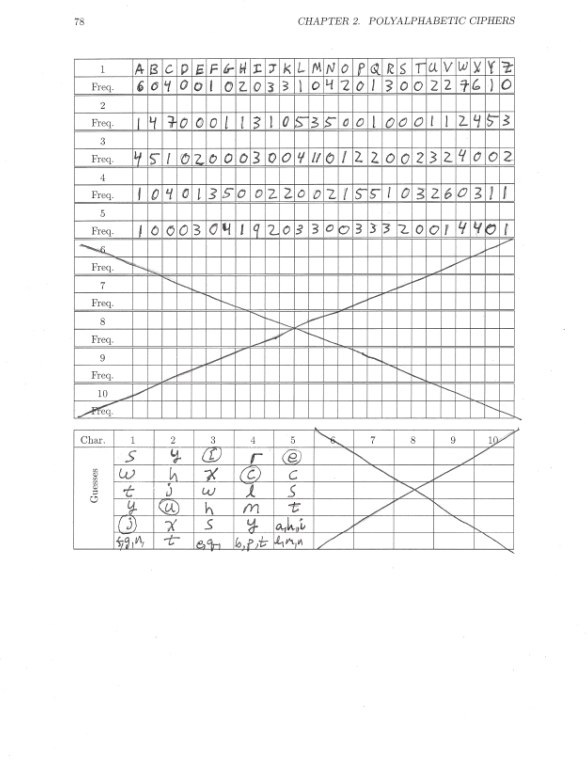 78 CHAPTER 2. POLYALPHABETIC CIPHERS
1 A B C D E F G H I J K L M N O P Q R S T U V W X Y Z
Freq. 6 0 4 0 0 1 0 2 0 3 3 1 0 4 2 0 1 3 0 0 2 2 7 6 1 0
2
Freq. 1 4 7 0 0 0 1 1 3 1 0 5 3 5 0 0 1 0 0 0 1 1 2 4 5 3
3
Freq. 4 5 1 0 2 0 0 0 3 0 0 4 11 0 1 2 2 0 0 2 3 2 4 0 0 2
4
Freq. 1 0 4 0 1 3 5 0 0 2 2 0 0 2 1 5 5 1 0 3 2 6 0 3 1 1
5
Freq. 1 0 0 0 3 0 4 1 9 2 0 3 3 0 0 3 3 3 2 0 0 1 4 4 0 1
6
Freq.
7
Freq.
8
Freq.
9
Freq.
10
Freq.
Char. 1 2 3 4 5 6 7 8 9 10
Guesses
s y i r e
w h x c c
t j w l s
y u h m t
j x s y a,h,i
t e,q, b,p,t l,m,n